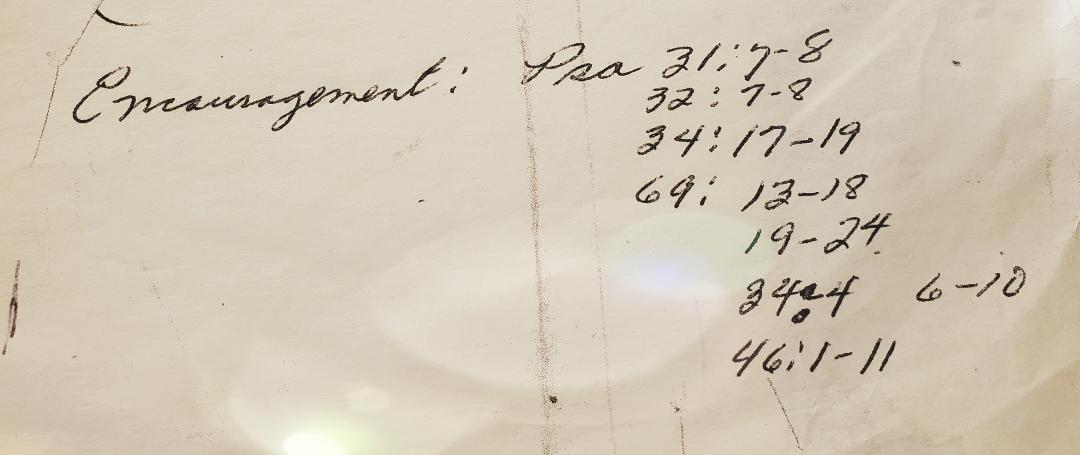 Encouragement: Psa 31:7-8
32:7-8
34:17-19
69:13-18
19-24
34:4 6-10
46:1-11